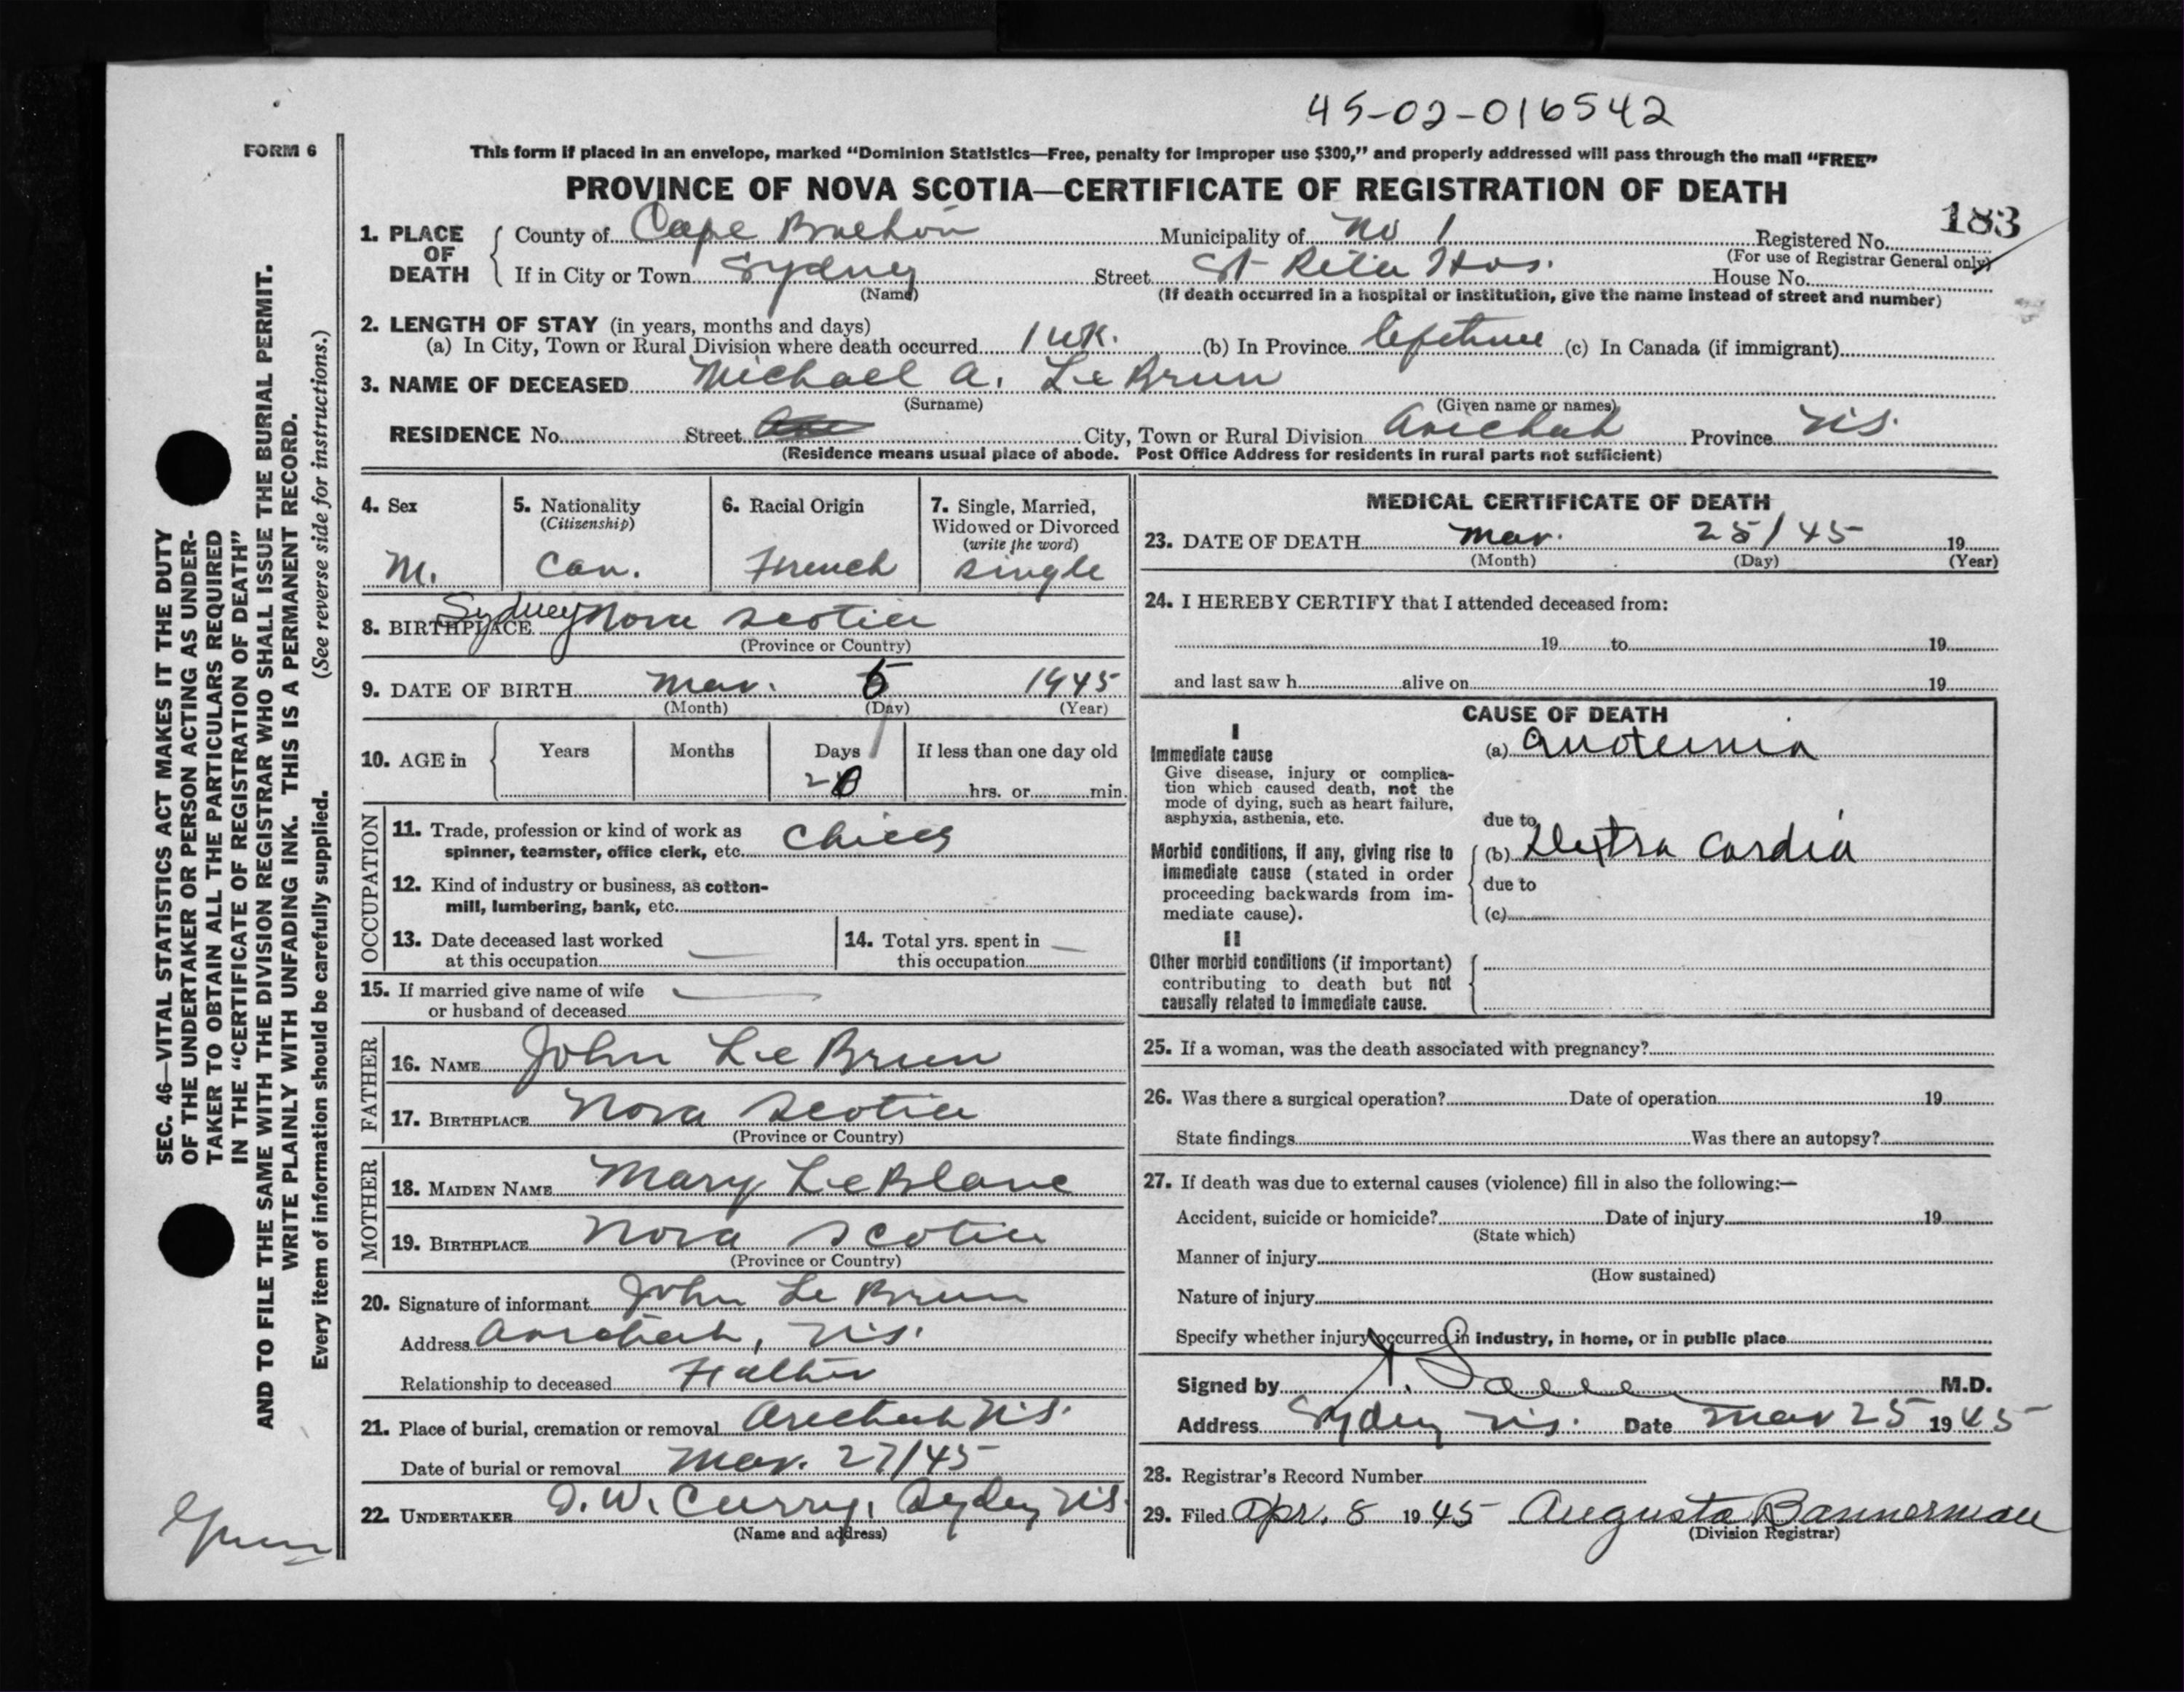 45-02-016542
FORM 6
This form if placed in an envelope, marked "Dominion Statistics—Free, penalty for improper use $300," and properly addressed will pass through the mail "FREE"
PROVINCE OF NOVA SCOTIA—CERTIFICATE OF REGISTRATION OF DEATH
183
1. PLACE OF DEATH
County of Cape Breton Municipality of No 1 Registered No.
(For use of Registrar General only)
If in City or Town Sydney Street St Rita Hos. House No.
(Name) (If death occurred in a hospital or institution, give the name instead of street and number)
2. LENGTH OF STAY (in years, months and days)
(a) In City, Town or Rural Division where death occurred 1 wk. (b) In Province lifetime (c) In Canada (if immigrant)
3. NAME OF DECEASED Michael A. LeBrun
(Surname) (Given name or names)
RESIDENCE No. Street City, Town or Rural Division Arichat Province N.S.
(Residence means usual place of abode. Post Office Address for residents in rural parts not sufficient)
4. Sex
M.
5. Nationality
(Citizenship)
Can.
6. Racial Origin
French
7. Single, Married,
Widowed or Divorced
(write the word)
single
8. BIRTHPLACE Sydney Nova Scotia
(Province or Country)
9. DATE OF BIRTH Mar. 5 1945
(Month) (Day) (Year)
10. AGE in
Years Months Days If less than one day old
20 hrs. or min.
OCCUPATION
11. Trade, profession or kind of work as
spinner, teamster, office clerk, etc. Child
12. Kind of industry or business, as cotton-
mill, lumbering, bank, etc.
13. Date deceased last worked
at this occupation —
14. Total yrs. spent in
this occupation —
15. If married give name of wife
or husband of deceased —
FATHER
16. NAME John LeBrun
17. BIRTHPLACE Nova Scotia
(Province or Country)
MOTHER
18. MAIDEN NAME Mary LeBlanc
19. BIRTHPLACE Nova Scotia
(Province or Country)
20. Signature of informant John Le Brun
Address Arichat, N.S.
Relationship to deceased Father
21. Place of burial, cremation or removal Arichat N.S.
Date of burial or removal Mar. 27/45
22. UNDERTAKER D. W. Curry, Sydney N.S.
(Name and address)
MEDICAL CERTIFICATE OF DEATH
23. DATE OF DEATH Mar. 25/45 19
(Month) (Day) (Year)
24. I HEREBY CERTIFY that I attended deceased from:
19 to 19
and last saw h alive on 19
CAUSE OF DEATH
I
Immediate cause
Give disease, injury or complica-
tion which caused death, not the
mode of dying, such as heart failure,
asphyxia, asthenia, etc.
(a)
due to
Morbid conditions, if any, giving rise to
immediate cause (stated in order
proceeding backwards from im-
mediate cause).
(b) Dextra Cardia
due to
(c)
II
Other morbid conditions (if important)
contributing to death but not
causally related to immediate cause.
25. If a woman, was the death associated with pregnancy?
26. Was there a surgical operation? Date of operation 19
State findings Was there an autopsy?
27. If death was due to external causes (violence) fill in also the following:—
Accident, suicide or homicide? Date of injury 19
(State which)
Manner of injury
(How sustained)
Nature of injury
Specify whether injury occurred in industry, in home, or in public place
Signed by M.D.
Address Sydney N.S. Date Mar 25 1945
28. Registrar's Record Number
29. Filed Apr. 8 1945 Augusta Bannerman
(Division Registrar)
SEC. 46—VITAL STATISTICS ACT MAKES IT THE DUTY
OF THE UNDERTAKER OR PERSON ACTING AS UNDER-
TAKER TO OBTAIN ALL THE PARTICULARS REQUIRED
IN THE "CERTIFICATE OF REGISTRATION OF DEATH"
AND TO FILE THE SAME WITH THE DIVISION REGISTRAR WHO SHALL ISSUE THE BURIAL PERMIT.
WRITE PLAINLY WITH UNFADING INK. THIS IS A PERMANENT RECORD.
Every item of information should be carefully supplied. (See reverse side for instructions.)